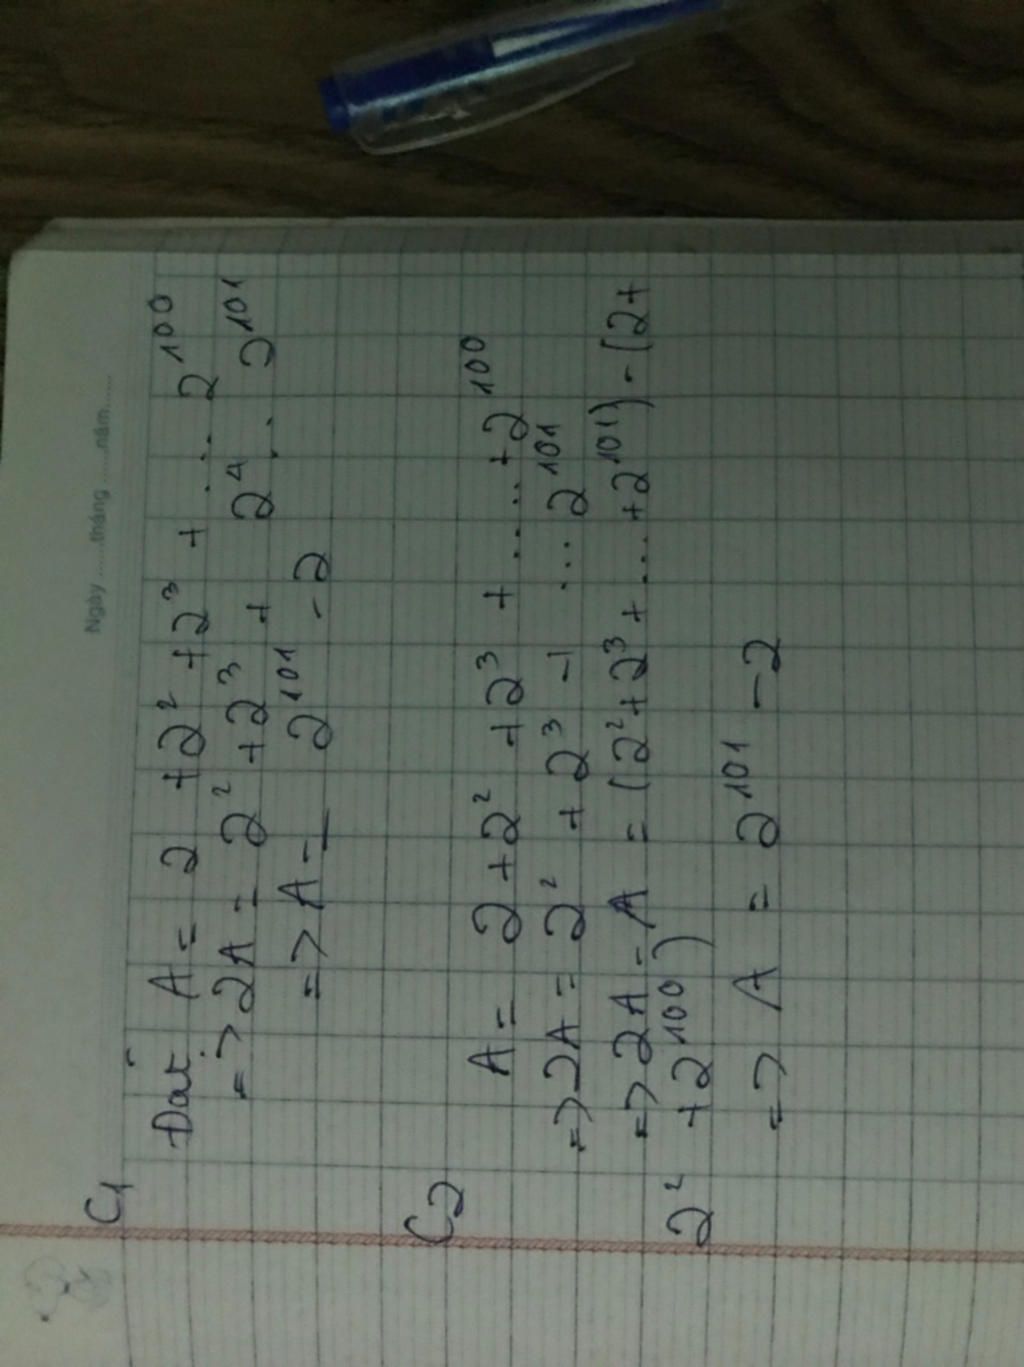 Ngày ......tháng ......năm......
C1
Đặt A = 2 + 2² + 2³ + ..... 2¹⁰⁰
=> 2A = 2² + 2³ + 2⁴ .. 2¹⁰¹
=> A = 2¹⁰¹ - 2
C2
A = 2 + 2² + 2³ + ..... + 2¹⁰⁰
=> 2A = 2² + 2³ - 1 ... 2¹⁰¹
=> 2A - A = (2² + 2³ + .... + 2¹⁰¹) - (2 +
2² + 2¹⁰⁰)
=> A = 2¹⁰¹ - 2